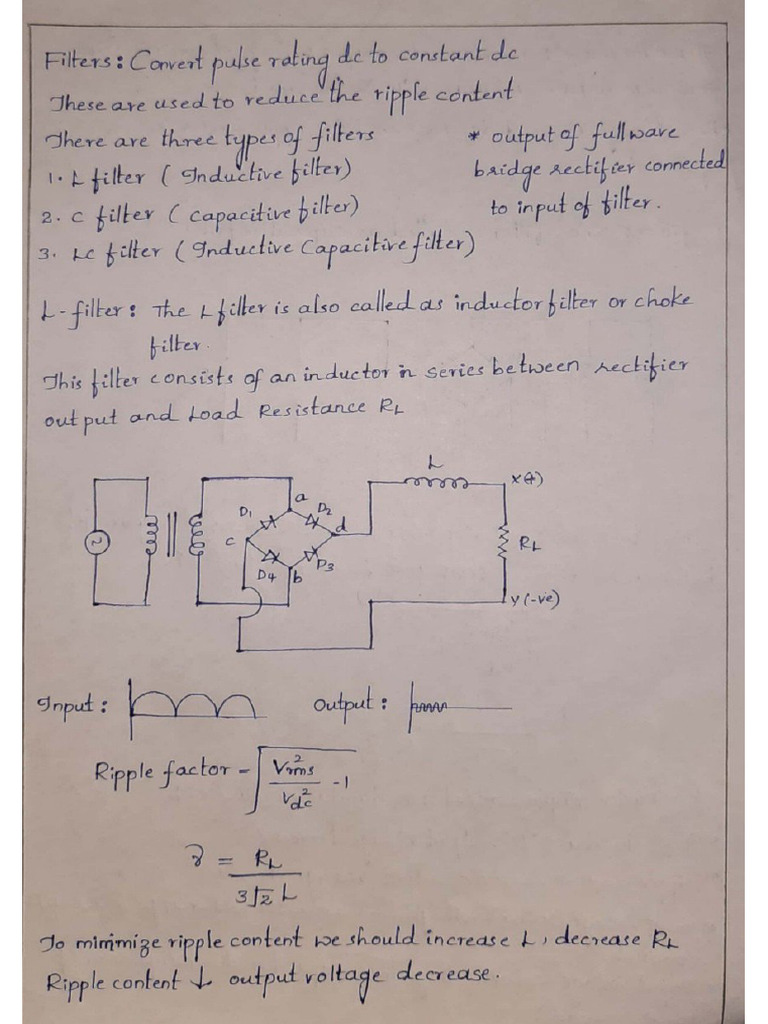 Filters: Convert pulse rating dc to constant dc
These are used to reduce the ripple content
There are three types of filters
1. L filter ( Inductive filter)
2. C filter ( Capacitive filter)
3. LC filter ( Inductive Capacitive filter)
* output of fullwave
bridge rectifier connected
to input of filter.
L-filter: The L filter is also called as inductor filter or choke
filter.
This filter consists of an inductor in series between rectifier
output and Load Resistance RL
L
x(+)
a
D1
D2
d
c
RL
D4
b
D3
~
y(-ve)
Input:
Output:
Ripple factor = √(Vrms²/Vdc² - 1)
γ = RL
3√2 L
To minimize ripple content we should increase L, decrease RL
Ripple content ↓ output voltage decrease.